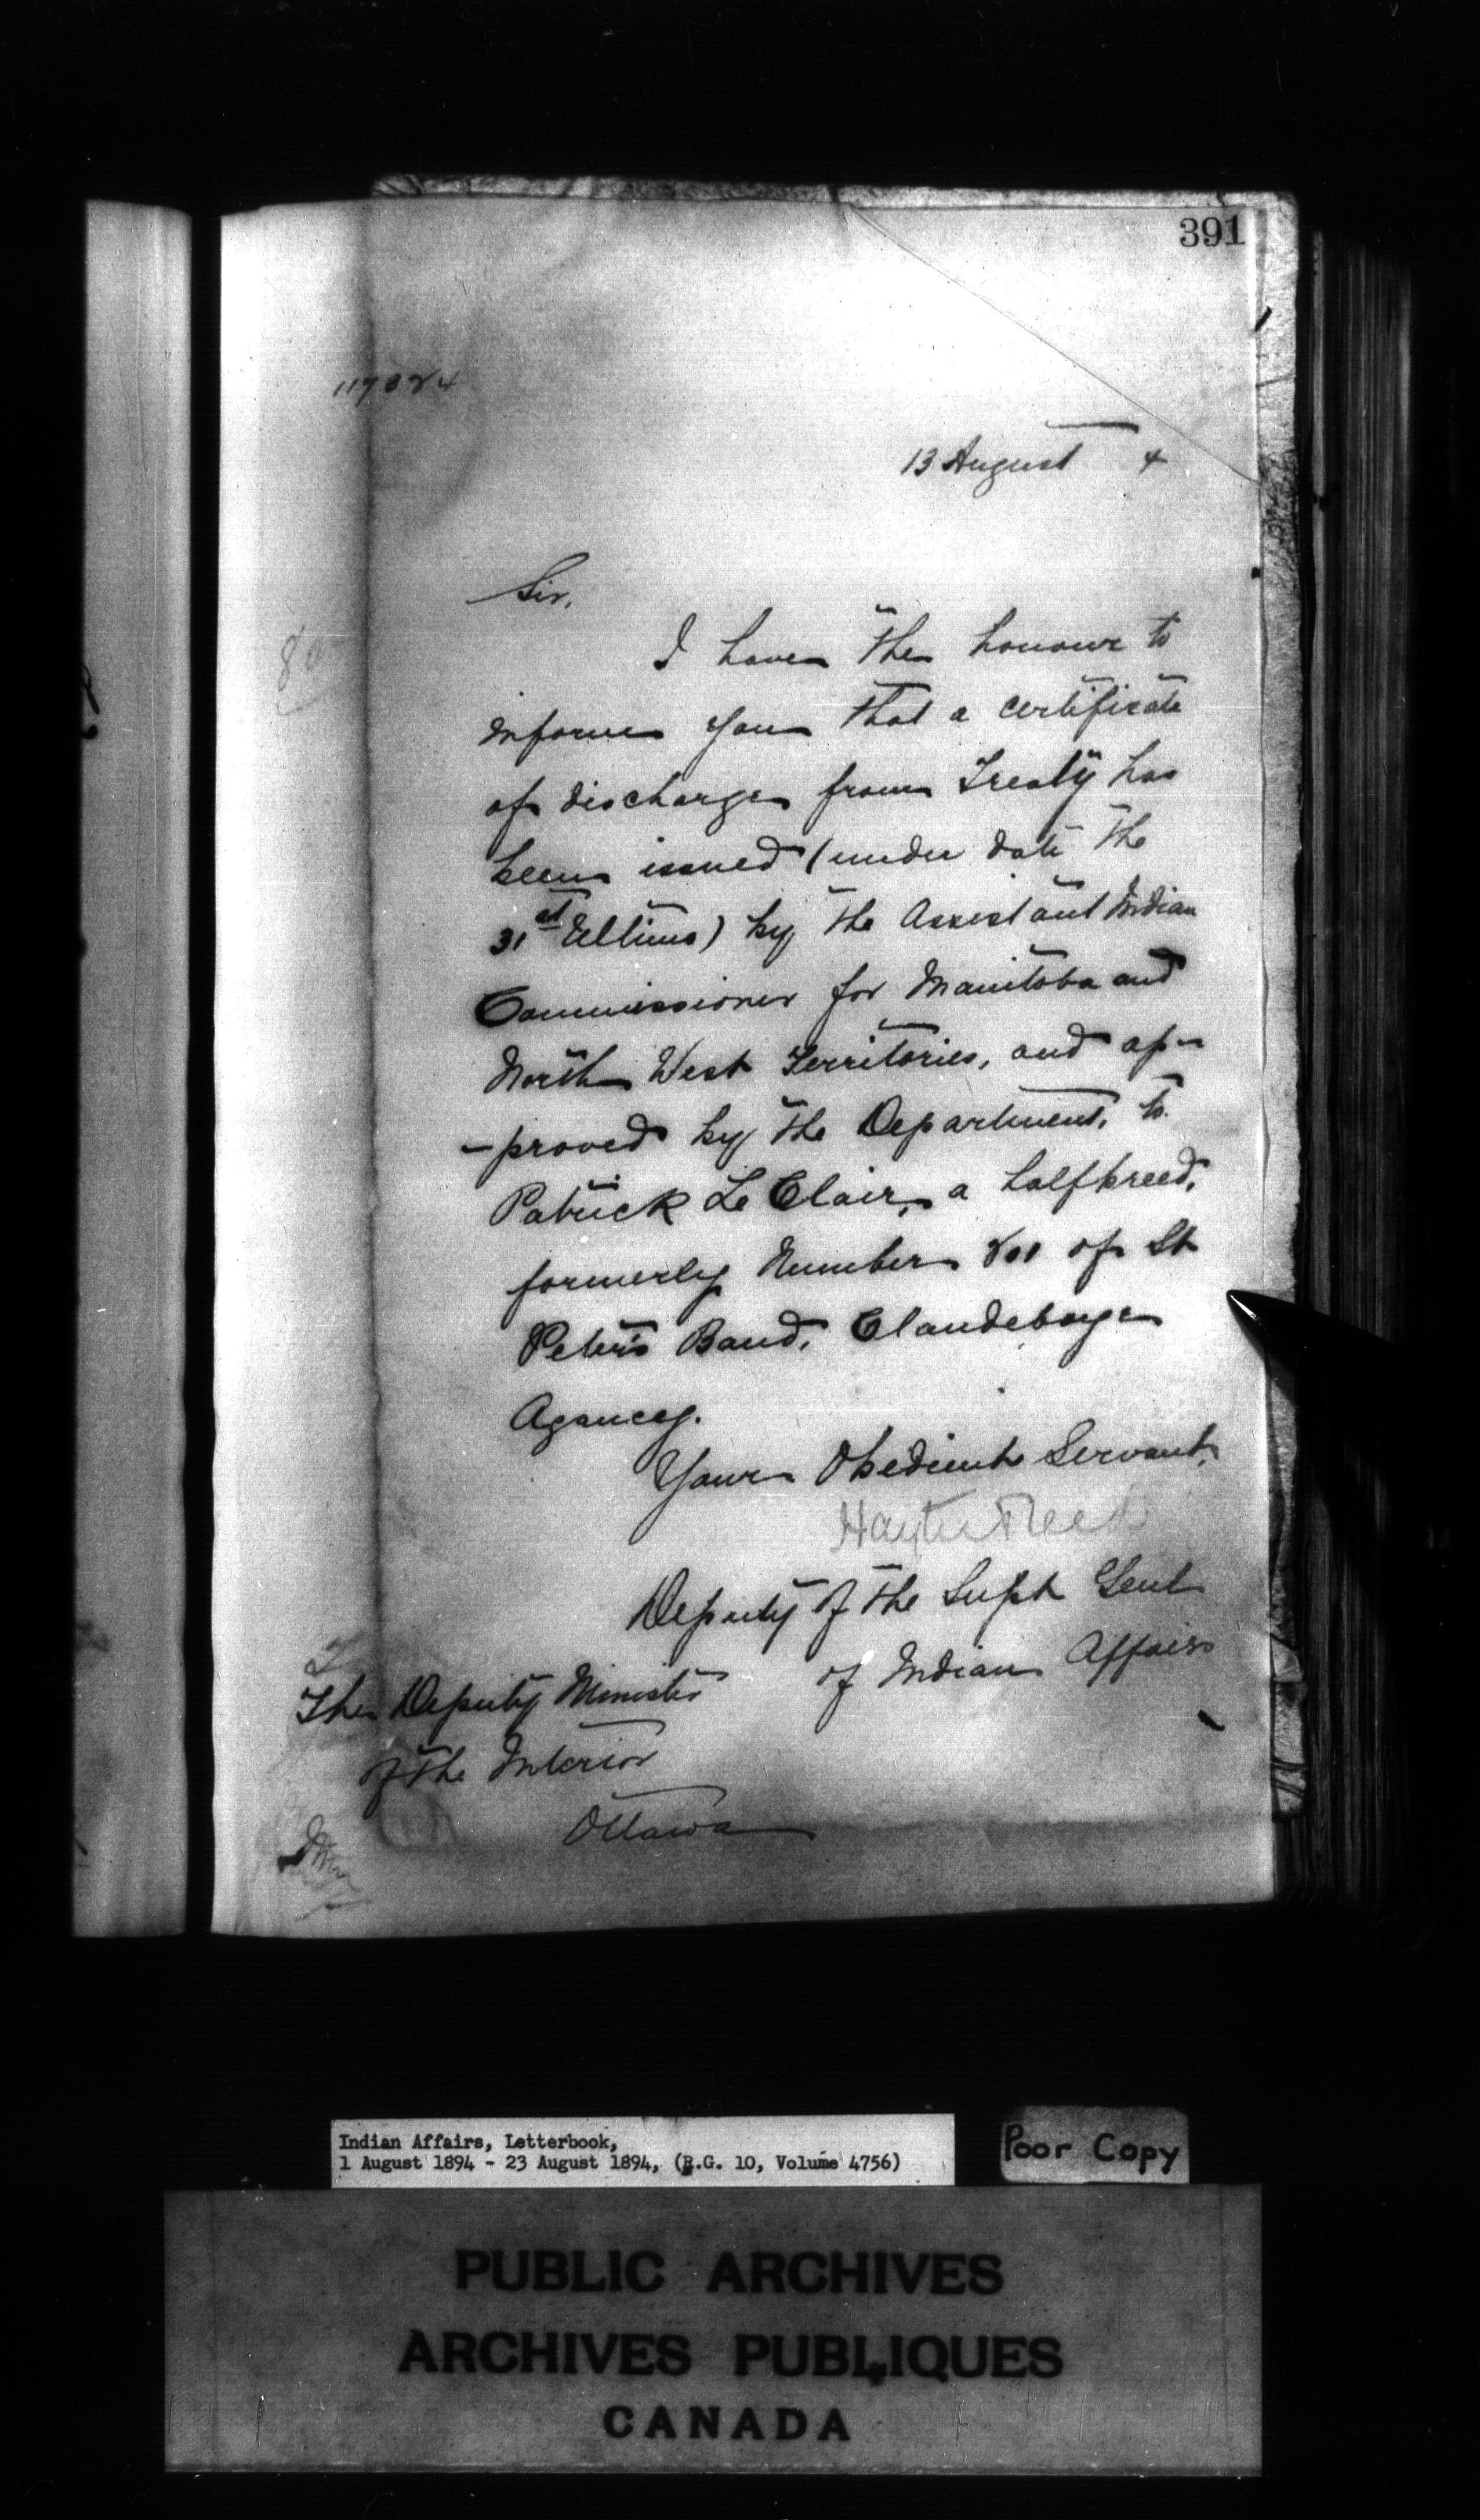 391
117324
13 August 4
Sir,
I have the honour to
inform you that a certificate
of discharge from Treaty has
been issued (under date the
31st Ultimo) by the Assistant Indian
Commissioner for Manitoba and
North West Territories, and ap-
-proved by the Department, to
Patrick Le Clair, a halfbreed,
formerly Number of St
Peter's Band, Clandeboye
Agancey.
Your Obedient Servant,
Hayter Reed
Deputy of the Supt Genl
of Indian Affairs
The Deputy Minister
of the Interior
Ottawa
Indian Affairs, Letterbook,
1 August 1894 - 23 August 1894, (R.G. 10, Volume 4756)
Poor Copy
PUBLIC ARCHIVES
ARCHIVES PUBLIQUES
CANADA